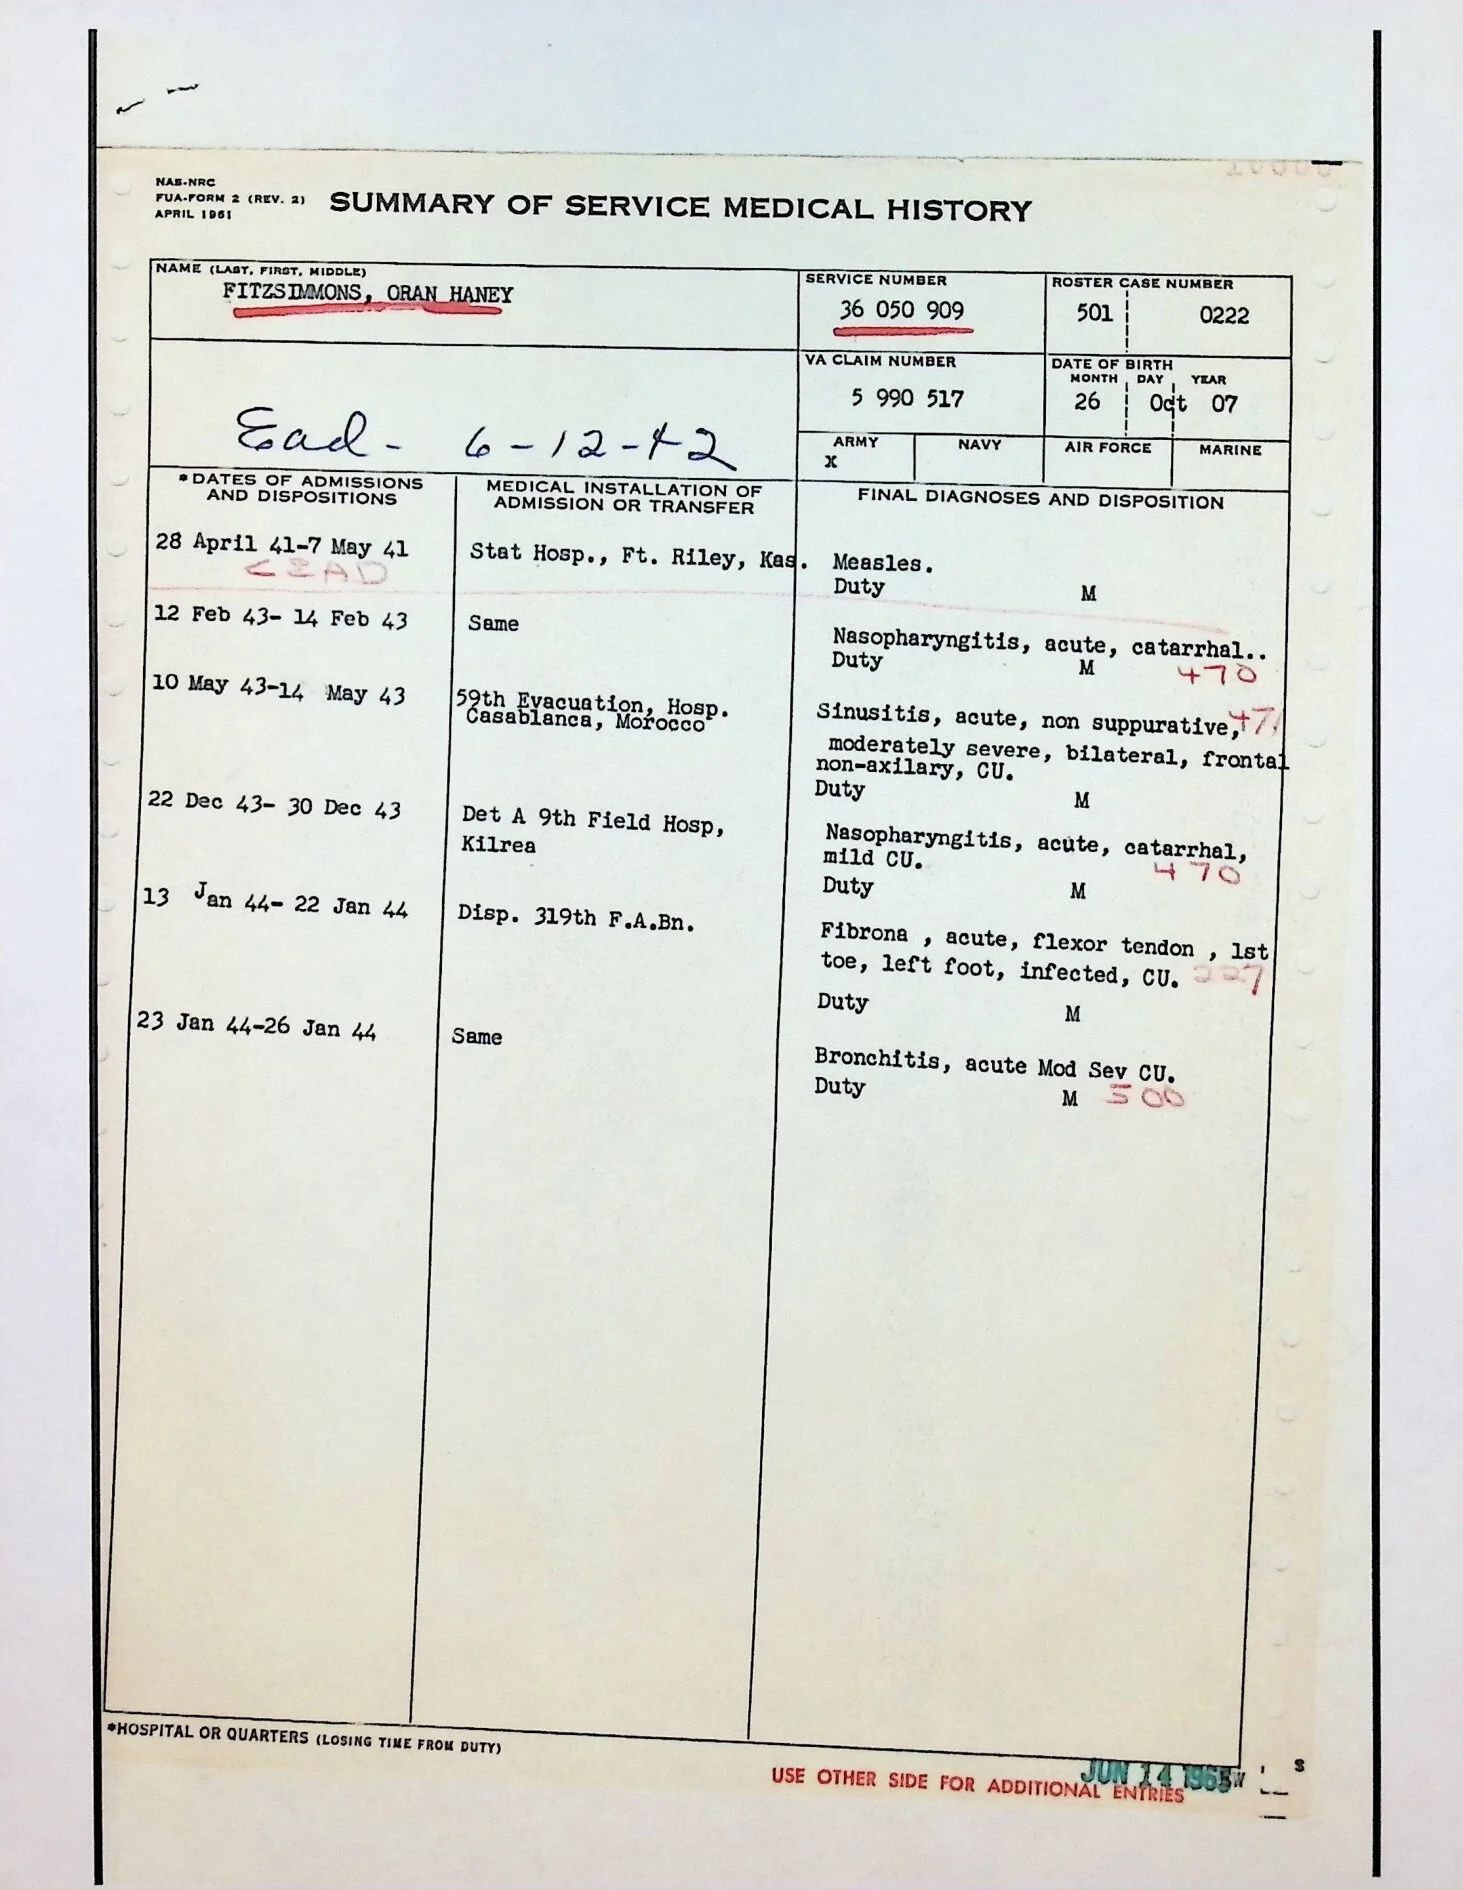 NAB-NRC
FUA-FORM 2 (REV. 2)
APRIL 1961
SUMMARY OF SERVICE MEDICAL HISTORY
NAME (LAST, FIRST, MIDDLE)
FITZSIMMONS, ORAN HANEY
SERVICE NUMBER
36 050 909
ROSTER CASE NUMBER
501 0222
VA CLAIM NUMBER
5 990 517
DATE OF BIRTH
MONTH DAY YEAR
26 Oct 07
Ead - 6-12-42
ARMY NAVY AIR FORCE MARINE
X
*DATES OF ADMISSIONS
AND DISPOSITIONS
MEDICAL INSTALLATION OF
ADMISSION OR TRANSFER
FINAL DIAGNOSES AND DISPOSITION
28 April 41-7 May 41
Stat Hosp., Ft. Riley, Kas.
Measles.
Duty M
12 Feb 43- 14 Feb 43
Same
Nasopharyngitis, acute, catarrhal..
Duty M 470
10 May 43-14 May 43
59th Evacuation, Hosp.
Casablanca, Morocco
Sinusitis, acute, non suppurative, 471
moderately severe, bilateral, frontal
non-axilary, CU.
Duty M
22 Dec 43- 30 Dec 43
Det A 9th Field Hosp,
Kilrea
Nasopharyngitis, acute, catarrhal,
mild CU. 470
Duty M
13 Jan 44- 22 Jan 44
Disp. 319th F.A.Bn.
Fibrona , acute, flexor tendon , 1st
toe, left foot, infected, CU. 227
Duty M
23 Jan 44-26 Jan 44
Same
Bronchitis, acute Mod Sev CU.
Duty M 500
*HOSPITAL OR QUARTERS (LOSING TIME FROM DUTY)
USE OTHER SIDE FOR ADDITIONAL ENTRIES
JUN 14 1965
S